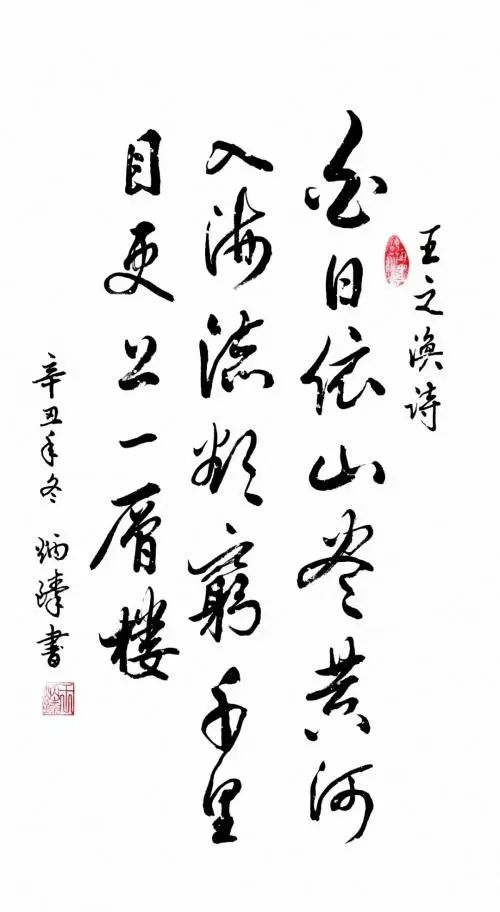 王之渙詩
白日依山尽黄河
入海流欲窮千里
目更上一層樓
辛丑年冬 炳臻書